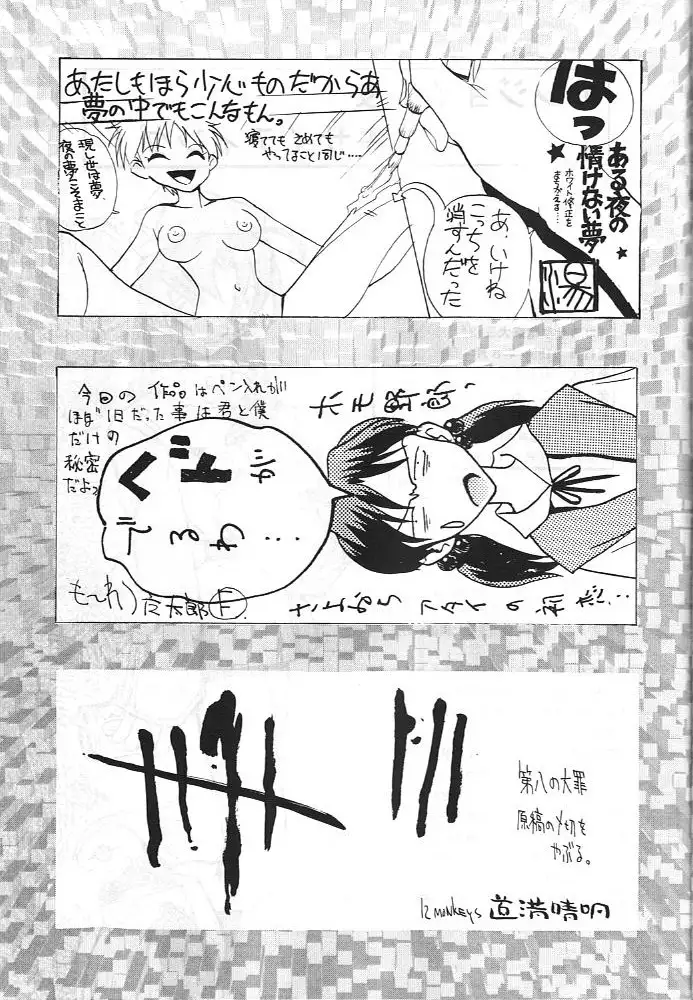 はっ
ある夜の
情けない夢
ホワイト修正を
まちがえる…
あ、いけね
こっちを
消すんだった
あたしもほら少心ものだつからあ
夢の中でもこんなもん。
寝てても さめても
やってること同じ……
現し世は夢、
夜の夢こそまこと
今回の 作品はペン入れが
ほぼ1日だった事は君と僕
だけの
秘密
だよ。
ヘドが
でるわ…
さよおなら アタイの
12 MONKEYS 道満晴明
第八の大罪
原稿の〆切を
やぶる。